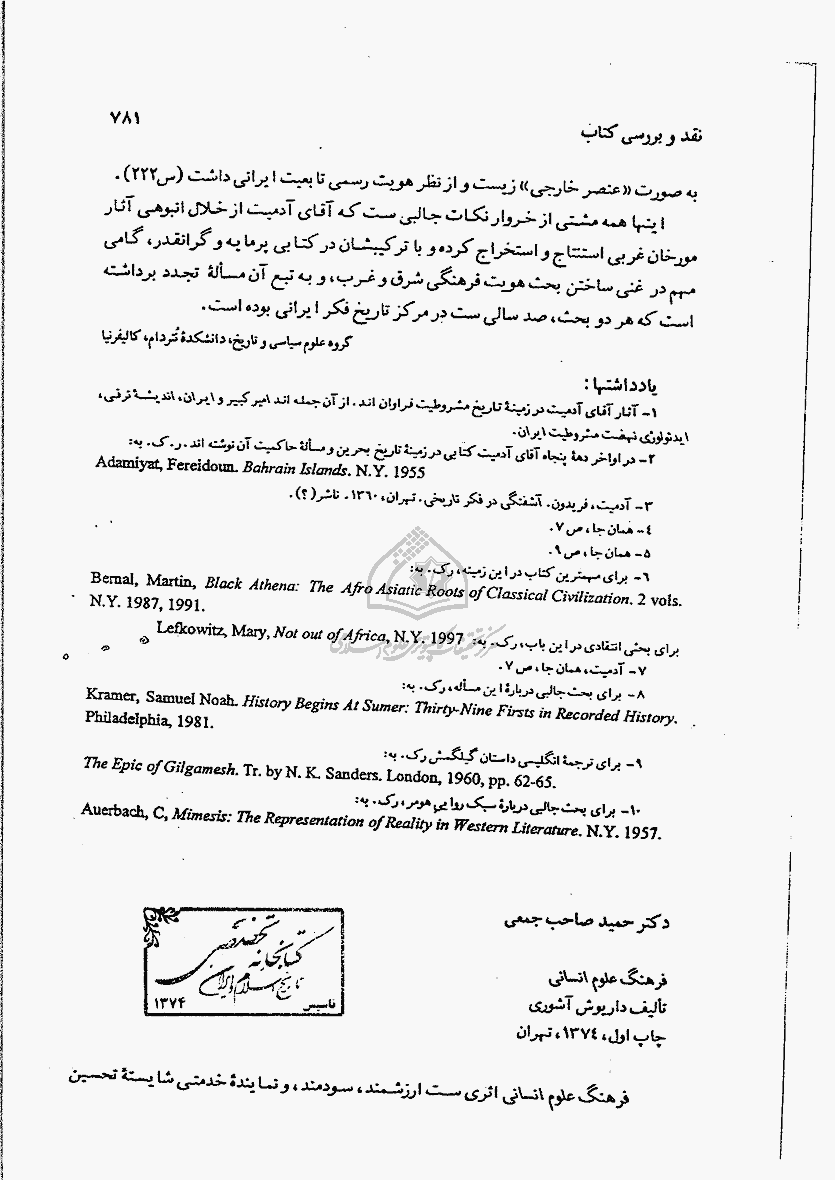 نقد و بررسی کتاب
۷۸۱
به صورت «عنصر خارجی» زیست و از نظر هویت رسمی تابعیت ایرانی داشت (ص۲۲۲).
اینها همه مشتی از خروار نکات جالبی ست که آقای آدمیت از خلال انبوهی آثار
مورخان غربی استنتاج و استخراج کرده و با ترکیبشان در کتابی پرمایه و گرانقدر، گامی
مهم در غنی ساختن بحث هویت فرهنگی شرق و غرب، و به تبع آن مسألهٔ تجدد برداشته
است که هر دو بحث، صد سالی ست در مرکز تاریخ فکر ایرانی بوده است.
گروه علوم سیاسی و تاریخ، دانشکدهٔ نُتردام، کالیفرنیا
یادداشتها:
۱- آثار آقای آدمیت در زمینهٔ تاریخ مشروطیت فراوان اند. از آن جمله اند امیرکبیر و ایران، اندیشهٔ ترقی،
ایدئولوژی نهضت مشروطیت ایران.
۲- در اواخر دههٔ پنجاه آقای آدمیت کتابی در زمینهٔ تاریخ بحرین و مسألهٔ حاکمیت آن نوشته اند. ر.ک. به:
Adamiyat, Fereidoun. Bahrain Islands. N.Y. 1955
۳- آدمیت، فریدون. آشفتگی در فکر تاریخی. تهران، ۱۳۶۰. ناشر(؟).
۴- همان جا، ص ۷.
۵- همان جا، ص ۹.
۶- برای مهمترین کتاب در این زمینه، رک. به:
Bernal, Martin, Black Athena: The Afro Asiatic Roots of Classical Civilization. 2 vols.
N.Y. 1987, 1991.
برای بحثی انتقادی در این باب، رک. به: Lefkowitz, Mary, Not out of Africa, N.Y. 1997
۷- آدمیت، همان جا، ص ۷.
۸- برای بحث جالبی دربارهٔ این مسأله، رک. به:
Kramer, Samuel Noah. History Begins At Sumer: Thirty-Nine Firsts in Recorded History.
Philadelphia, 1981.
۹- برای ترجمهٔ انگلیسی داستان گیلگمش رک. به:
The Epic of Gilgamesh. Tr. by N. K. Sanders. London, 1960, pp. 62-65.
۱۰- برای بحث جالبی دربارهٔ سبک روایی هومر، رک. به:
Auerbach, C, Mimesis: The Representation of Reality in Western Literature. N.Y. 1957.
دکتر حمید صاحب جمعی
فرهنگ علوم انسانی
تألیف داریوش آشوری
چاپ اول، ۱۳۷۴، تهران
کتابخانه تخصصی
تاریخ اسلام و ایران
تاسیس ۱۳۷۴
فرهنگ علوم انسانی اثری ست ارزشمند، سودمند، و نمایندهٔ خدمتی شایستهٔ تحسین